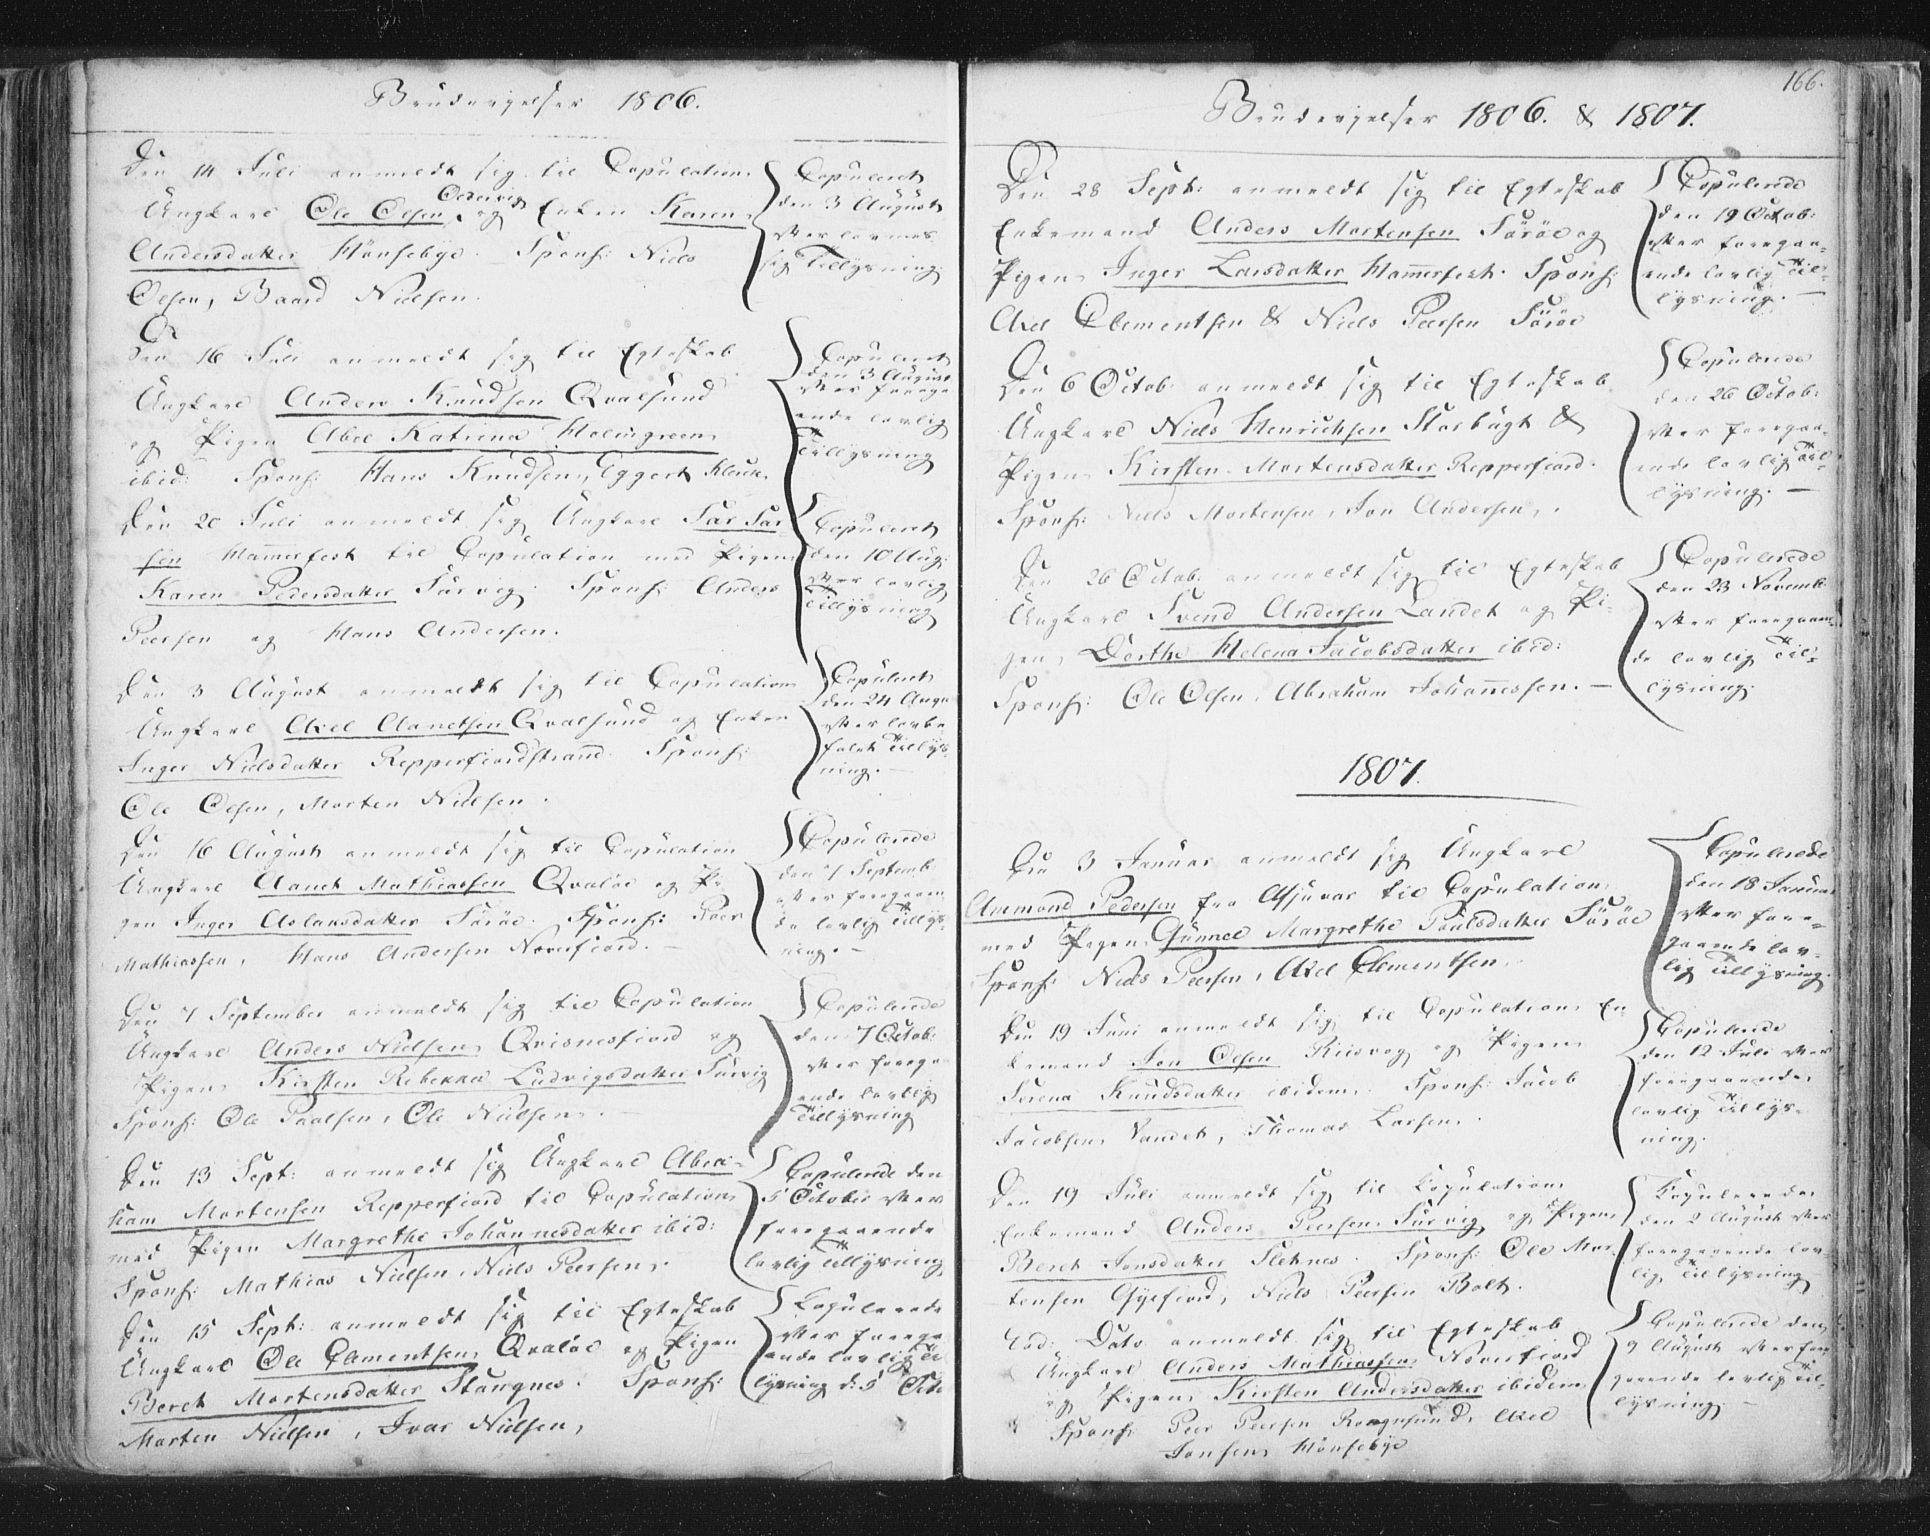 Brudevielser 1806.
Den 14 Juli anmeldt sig til Copulation
Ungkarl Ole Olsen Oedevig og Enken Karen
Andersdatter Hönsebye. Spons: Niels
Olsen, Baard Nielsen.
Copuleret
den 3 August
efter lovmes
sig Tillysning.
Den 16 Juli anmeldt sig til Egteskab
Ungkarl Anders Knudsen Qvalsund
og Pigen Abel Katrina Holmgreen
ibid: Spons: Hans Knudsen, Eggert Kleuk.
Copuleret
den 3 August
efter forega
ende lovlig
Tillysning
Den 20 Juli anmeldt sig Ungkarl Tar Tar
sen Hamerfest til Copulation med Pigen
Karen Pedersdatter Sarvig. Spons: Anders
Peersen og Hans Andersen.
Copuleret
den 10 Aug:
efter lovlig
Tillysning
Den 3 August anmeldt sig til Copulation
Ungkarl Axel Aanetsen Qvalsund og Enken
Inger Nielsdatter Repperfiordstrand. Spons:
Ole Olsen, Morten Nielsen.
Copuleret
den 24 Augu
efter lovbe
falet Tillys-
ning. —
Den 16 August anmeldt sig til Copulation
Ungkarl Aanet Mathiassen Qvaløe og Pi
gen Inger Aslaksdatter Sörøe. Spons: Peer
Mathiassen, Hans Andersen Noverfiord. —
Copulerede
den 7 Septemb
efter foregaaen
de lovlig Tillys-
ning. —
Den 7 September anmeldt sig til Copulation
Ungkarl Anders Nielsen Qvisnesfiord og
Pigen Kirsten Rebekka Ludvigsdatter Sarvig
Spons: Ole Paalsen, Ole Nielsen. —
Copulerede
den 7 Octob:
efter forega
ende lovlig
Tillysning
Den 13 Sept: anmeldt sig Ungkarl Abra-
ham Mortensen Repperfiord til Copulation
med Pigen Margrethe Johannesdatter ibid:
Spons: Mathias Nielsen, Niels Peersen.
Copulerede den
5 October efter
foregaaende
lovlig Tillysning
Den 15 Sept: anmeldt sig til Egteskab
Ungkarl Ole Clementsen Qvaløe og Pigen
Beret Mortensdatter Stangnes. Spons:
Morten Nielsen, Ivar Nielsen,
Kopulerede
efter forega
ende lovlig Til
lysning d: 5 Octo
166.
Brudevielser 1806. & 1807.
Den 28 Sept: anmeldt sig til Egteskab
Enkemand Anders Mortensen Sörøe og
Pigen Inger Larsdatter Hamerfest. Spons:
Axel Clementsen & Niels Peersen Sörøe
Copulerede
den 19 Octob:
efter foregaa-
ende lovlig Til-
lysning. —
Den 6 Octob: anmeldt sig til Egteskab
Ungkarl Niels Henrichsen Storbugt &
Pigen Kirsten Mortensdatter Repperfiord.
Spons: Niels Mortensen, Jon Andersen,.
Copulerede
den 26 Octob:
efter foregaa-
ende lovlig Til-
lysning. —
Den 26 Octob: anmeldt sig til Egteskab
Ungkarl Svend Andersen Landet og Pi-
gen Dorthe Helena Jacobsdatter ibid:
Spons: Ole Olsen, Abraham Johannessen. —
Copulerede
den 23 Novemb
efter foregaaen-
de lovlig Til-
lysning.
1807.
Den 3 Januar anmeldt sig Ungkarl
Aremond Pedersen fra Assuvar til Copulation
med Pigen Gunnel Margrethe Poulsdatter Sörøe
Spons: Niels Peersen, Axel Clementsen.
Copulerede
den 18 Januar
efter fore-
gaaende lov-
lig Tillysning.
Den 19 Juni anmeldt sig til Copulation En
kemand Jon Olsen Riisvog og Pigen
Serena Knudsdatter ibidem. Spons: Jacob
Jacobsen Vandet, Thomas Larsen.
Copulerede
den 12 Juli efter
foregaaende
lovlig Tillys-
ning.
Den 19 Juli anmeldt sig til Kopulation
Enkemand Anders Peersen Sarvig og Pigen
Beret Jonsdatter Sletnes. Spons: Ole Mor
tensen Gyefiord, Niels Peersen Bolt.
Kopulerede
den 2 August efter
foregaaende lov
lig Tillysning
Eod: Dato anmeldt sig til Egteskab
Ungkarl Anders Mathiassen Noverfiord
og Pigen Kirsten Andersdatter ibidem
Spons: Peer Peersen Rongnsund, Axel
Jonsen Hönsebye
Copulerede den
9 August efter fore
gaaende lovlig Til-
lysning. —